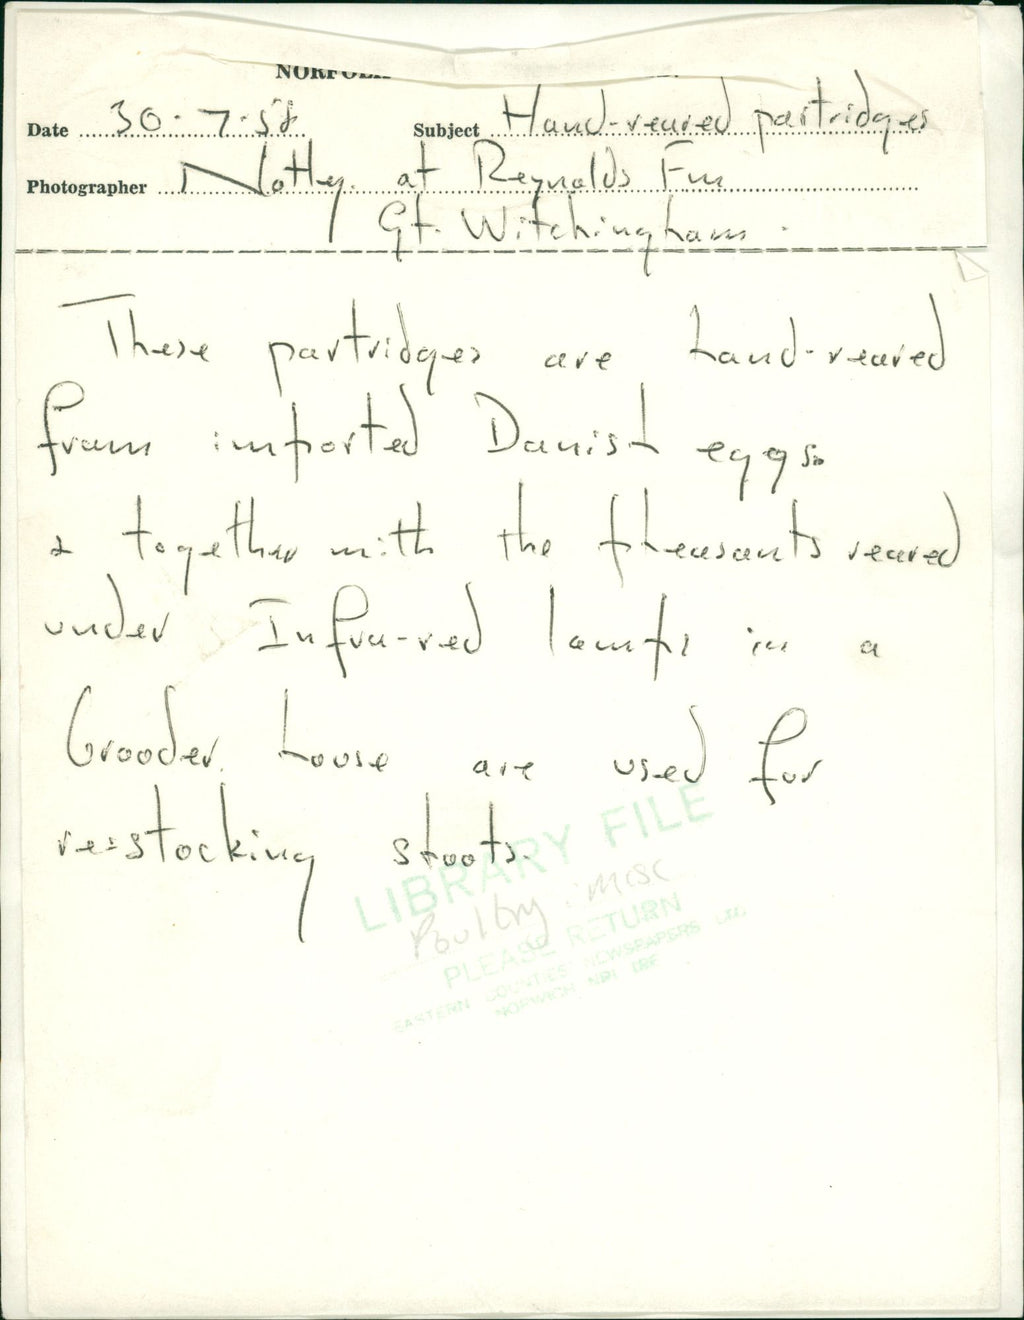 NORFOLK
Date 30.7.58 Subject Hand-reared partridges
Photographer Notley. at Reynolds Fm
Gt. Witchingham.
These partridges are hand-reared
from imported Danish eggs.
& together with the pheasants reared
under Infra-red lamps in a
Brooder house are used for
re-stocking shoots.
LIBRARY FILE
Poultry: misc
PLEASE RETURN
EASTERN COUNTIES NEWSPAPERS LTD
NORWICH NR1 1RE